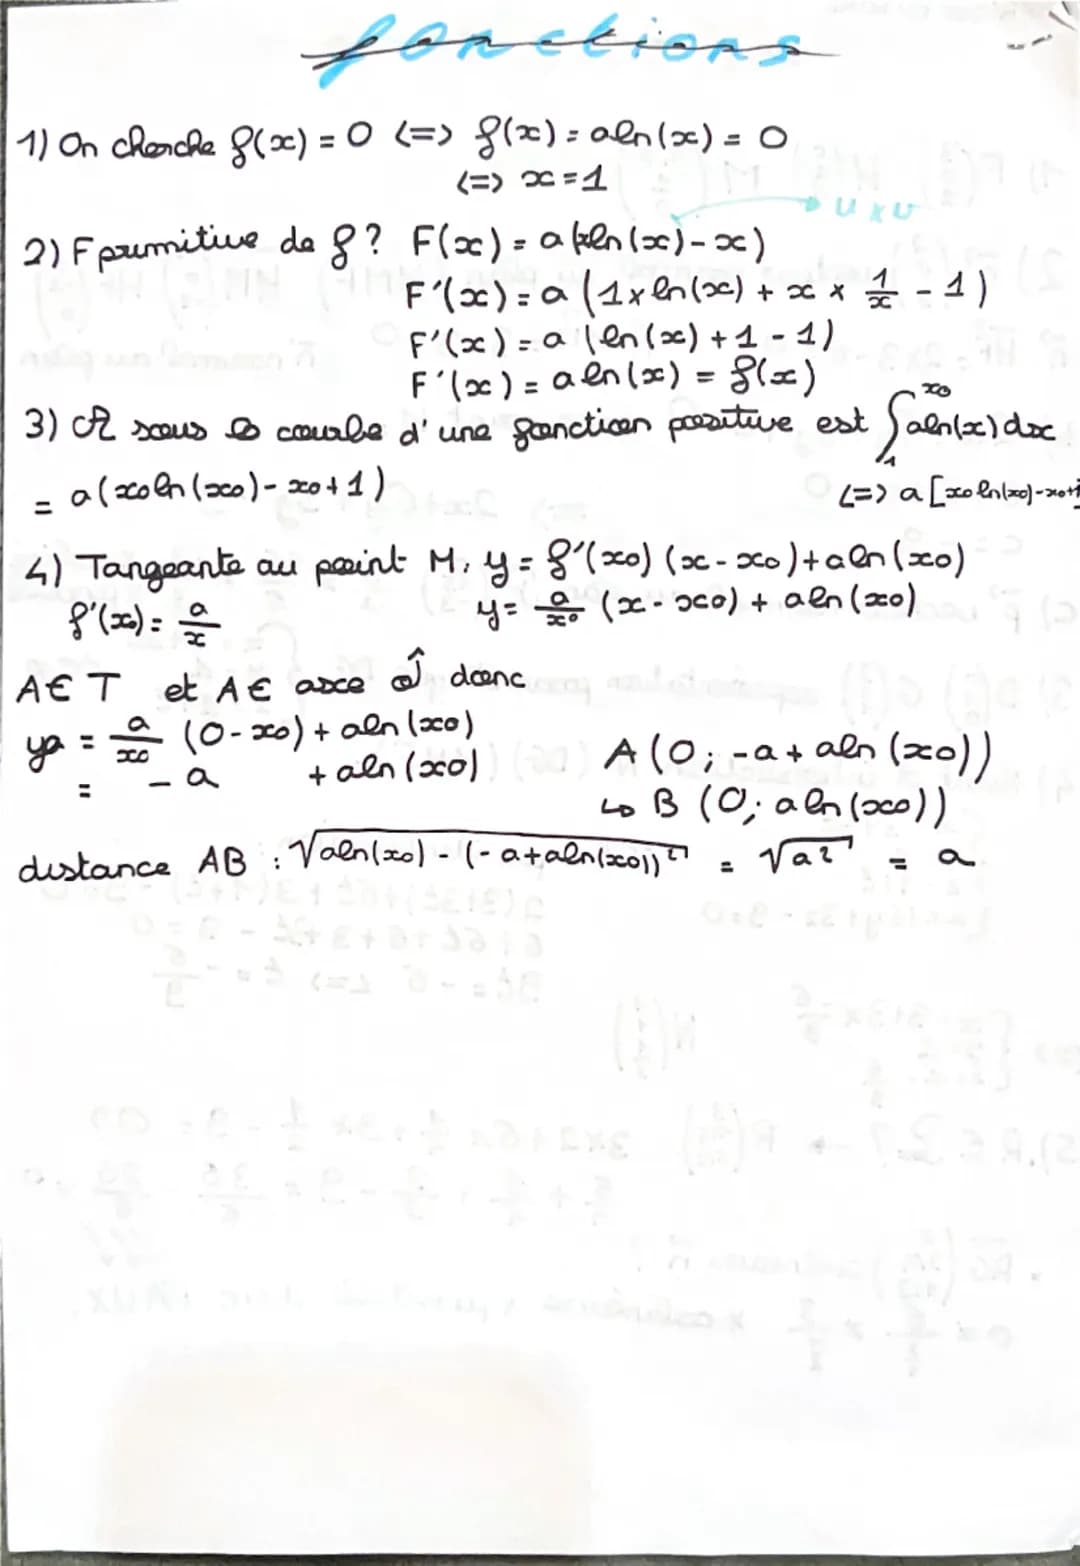 fonctions
1) On cherche f(x) = 0 <=> f(x) = aln(x) = 0
<=> x = 1
→ u x v
2) F primitive de f ? F(x) = a(xln(x) - x)
F'(x) = a (1 x ln(x) + x x 1/x - 1)
F'(x) = a (ln(x) + 1 - 1)
F'(x) = a ln(x) = f(x)
3) A sous la courbe d'une fonction positive est ∫₁^x0 aln(x) dx
= a(x0ln(x0) - x0 + 1) <=> a [x0 ln(x0) - x0 + 1
4) Tangeante au point M, y = f'(x0) (x - x0) + aln(x0)
f'(x) = a/x y = a/x0 (x - x0) + aln(x0)
A ∈ T et A ∈ axe oĵ donc
ya = a/x0 (0 - x0) + aln(x0)
= - a + aln(x0) A (0; -a + aln(x0))
↳ B (0; aln(x0))
distance AB : √aln(x0) - (-a + aln(x0))² = √a² = a